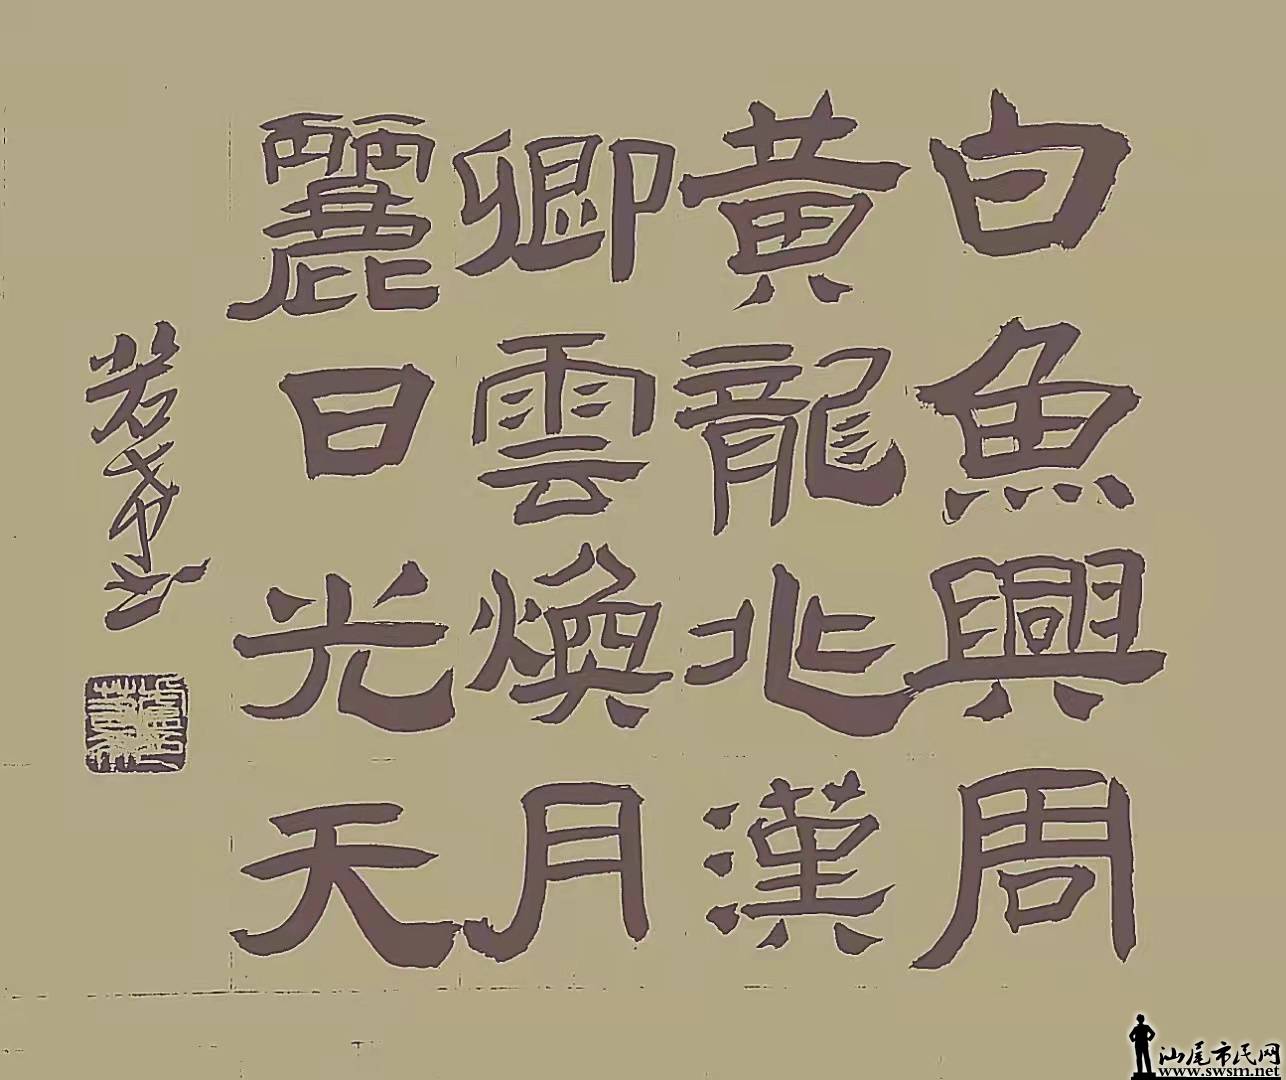 白魚興周
黃龍兆漢
卿雲煥月
麗日光天
汕尾市民网
www.swsm.net